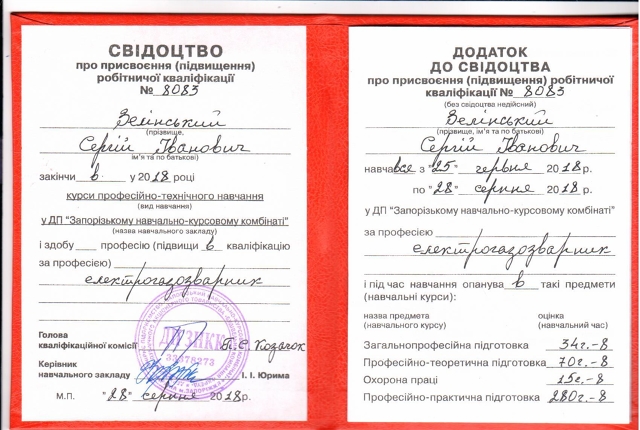 СВІДОЦТВО
про присвоєння (підвищення)
робітничої кваліфікації
№ 8083
Зелінський
(прізвище,
Сергій Іванович
ім'я та по батькові)
закінчи в у 2018 році
курси професійно-технічного навчання
(вид навчання)
у ДП "Запорізькому навчально-курсовому комбінаті"
(назва навчального закладу)
і здобу професію (підвищи в кваліфікацію
за професією)
електрогазозварник
Голова
кваліфікаційної комісії П.С. Козачок
Керівник
навчального закладу І. І. Юрима
М.П. "28" серпня 2018р.
ДОДАТОК
ДО СВІДОЦТВА
про присвоєння (підвищення) робітничої
кваліфікації № 8083
(без свідоцтва недійсний)
Зелінський
(прізвище, ім'я та по батькові)
Сергій Іванович
навчався з "25" червня 2018р.
по "28" серпня 2018р.
у ДП "Запорізькому навчально-курсовому комбінаті"
за професією
електрогазозварник
і під час навчання опанува в такі предмети
(навчальні курси):
назва предмета оцінка
(навчального курсу) (навчальний час)
Загальнопрофесійна підготовка 34г.-8
Професійно-теоретична підготовка 70г.-8
Охорона праці 15г.-8
Професійно-практична підготовка 280г.-8